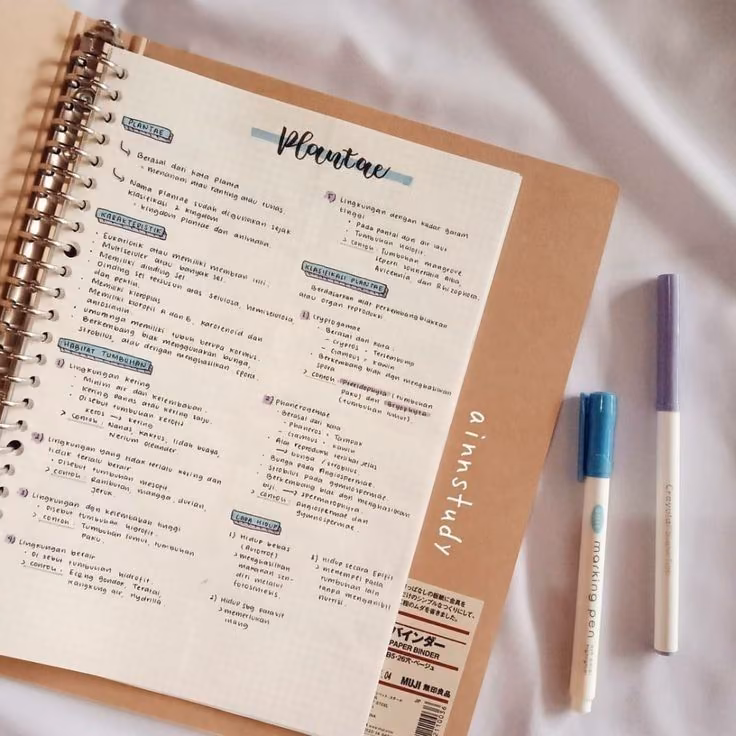 Plantae
PLANTAE
Berasal dari kata planta
- menanam atau ranting atau tunas.
Nama plantae sudah digunakan sejak
klasifikasi 2 kingdom
- kingdom plantae dan animalia.
KARAKTERISTIK
· Eukariotik atau memiliki membran inti.
· Multiseluler atau banyak sel.
· Memiliki dinding sel
· Dinding sel tersusun atas selulosa, hemiselulosa,
dan pektin.
· Memiliki kloroplas
· Memiliki klorofil A dan B, karotenoid dan
antosianin
· Umumnya memiliki tubuh berupa kormus.
· Berkembang biak menggunakan bunga,
strobilus, atau dengan menghasilkan spora.
HABITAT TUMBUHAN
1) Lingkungan kering
· Minim air dan kelembaban.
· Kering panas atau kering salju.
· Disebut tumbuhan xerofit
xeros → kering
> contoh: Nanas, kaktus, lidah buaya,
Nerium oleander
2) Lingkungan yang tidak terlalu kering dan
tidak terlalu berair
· Disebut tumbuhan mesofit
> contoh: Rambutan, mangga, durian,
jeruk.
3) Lingkungan dgn kelembaban tinggi
· Disebut tumbuhan higrofit.
> contoh: Tumbuhan lumut, tumbuhan
paku.
4) Lingkungan berair
· Disebut tumbuhan hidrofit.
> contoh: Eceng gondok, Teratai,
Kangkung air, Hydrilla
Lingkungan dengan kadar garam
tinggi
· Pada pantai dan air laut
· Tumbuhan halofit.
> contoh: Tumbuhan mangrove
seperti sonneratia alba,
Avicennia, dan Rhizophora.
KLASIFIKASI PLANTAE
Berdasarkan alat perkembangbiakkan
atau organ reproduksi
1) Cryptogamae
· Berasal dari kata:
- Cryptos = Tersembunyi
- Gamous = Kawin
· Berkembang biak dgn menghasilkan
spora
> contoh: Pteridophyta (tumbuhan
paku) dan Bryophyta
(tumbuhan lumut)
2) Phanerogamae
· Berasal dari kata
- Phaneros = Tampak
- Gamous = Kawin
· Alat reproduksi terlihat jelas
→ bunga / strobilus.
· Bunga pada angiospermae.
· Strobilus pada gymnospermae.
· Berkembang biak dgn menghasilkan
biji. → spermatophyta.
> contoh: angiospermae dan
gymnospermae.
CARA HIDUP
1) Hidup bebas
(Autotrof)
> menghasilkan
makanan sen-
diri melalui
fotosintesis.
2) Hidup sbg parasit
> memerlukan
inang
3) Hidup secara Epifit
> menempel pada
tumbuhan lain
tanpa mengambil
nutrisi.
ainnstudy
バインダー
PAPER BINDER
B5・26穴・ベージュ
MUJI 無印良品
marking pen